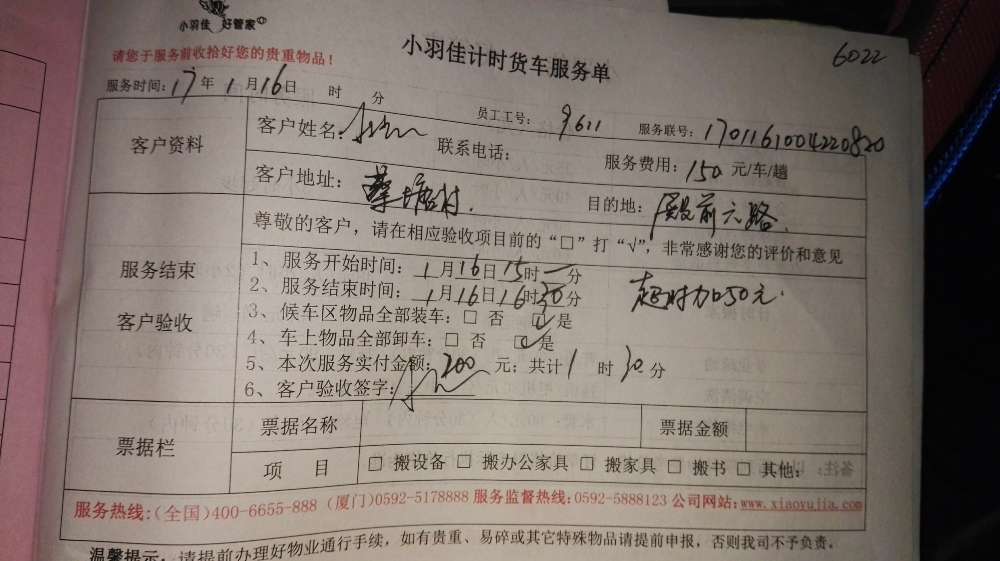 小羽佳 好管家
请您于服务前收拾好您的贵重物品！
小羽佳计时货车服务单
6022
服务时间：17年1月16日 时 分
员工工号：9611
服务联号：1701161004220820
客户资料
客户姓名：
联系电话：
服务费用：150元/车/趟
客户地址：蔡塘村.
目的地：殿前六路.
服务结束
客户验收
尊敬的客户，请在相应验收项目前的“□”打“√”，非常感谢您的评价和意见
1、服务开始时间：1月16日15时一分
2、服务结束时间：1月16日16时30分
超时加50元.
3、候车区物品全部装车：□ 否 ☑是
4、车上物品全部卸车：□ 否 ☑是
5、本次服务实付金额：200元；共计1时30分
6、客户验收签字：
票据栏
票据名称
票据金额
项 目
□ 搬设备 □ 搬办公家具 □ 搬家具 □ 搬书 □ 其他：
服务热线：(全国)400-6655-888 (厦门)0592-5178888 服务监督热线：0592-5888123 公司网站：www.xiaoyujia.com
温馨提示：请提前办理好物业通行手续，如有贵重、易碎或其它特殊物品请提前申报，否则我司不予负责。